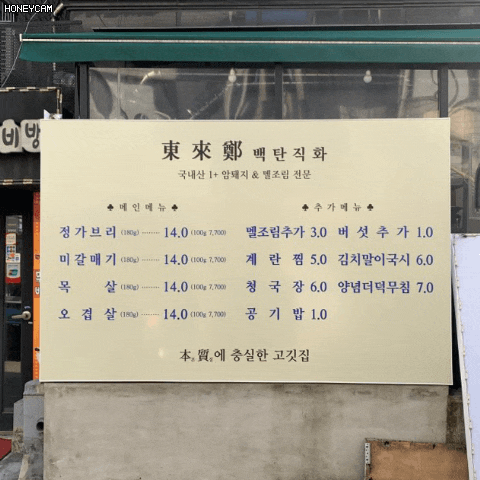 HONEYCAM
비방
東來鄭 백탄직화
국내산 1+ 암돼지 & 멜조림 전문
♣ 메인메뉴 ♣
정가브리 (180g) ········ 14.0 (100g 7,700)
미갈매기 (180g) ········ 14.0 (100g 7,700)
목살 (180g) ········ 14.0 (100g 7,700)
오겹살 (180g) ········ 14.0 (100g 7,700)
♣ 추가메뉴 ♣
멜조림추가 3.0 버섯추가 1.0
계란찜 5.0 김치말이국시 6.0
청국장 6.0 양념더덕무침 7.0
공기밥 1.0
本본質질에 충실한 고깃집